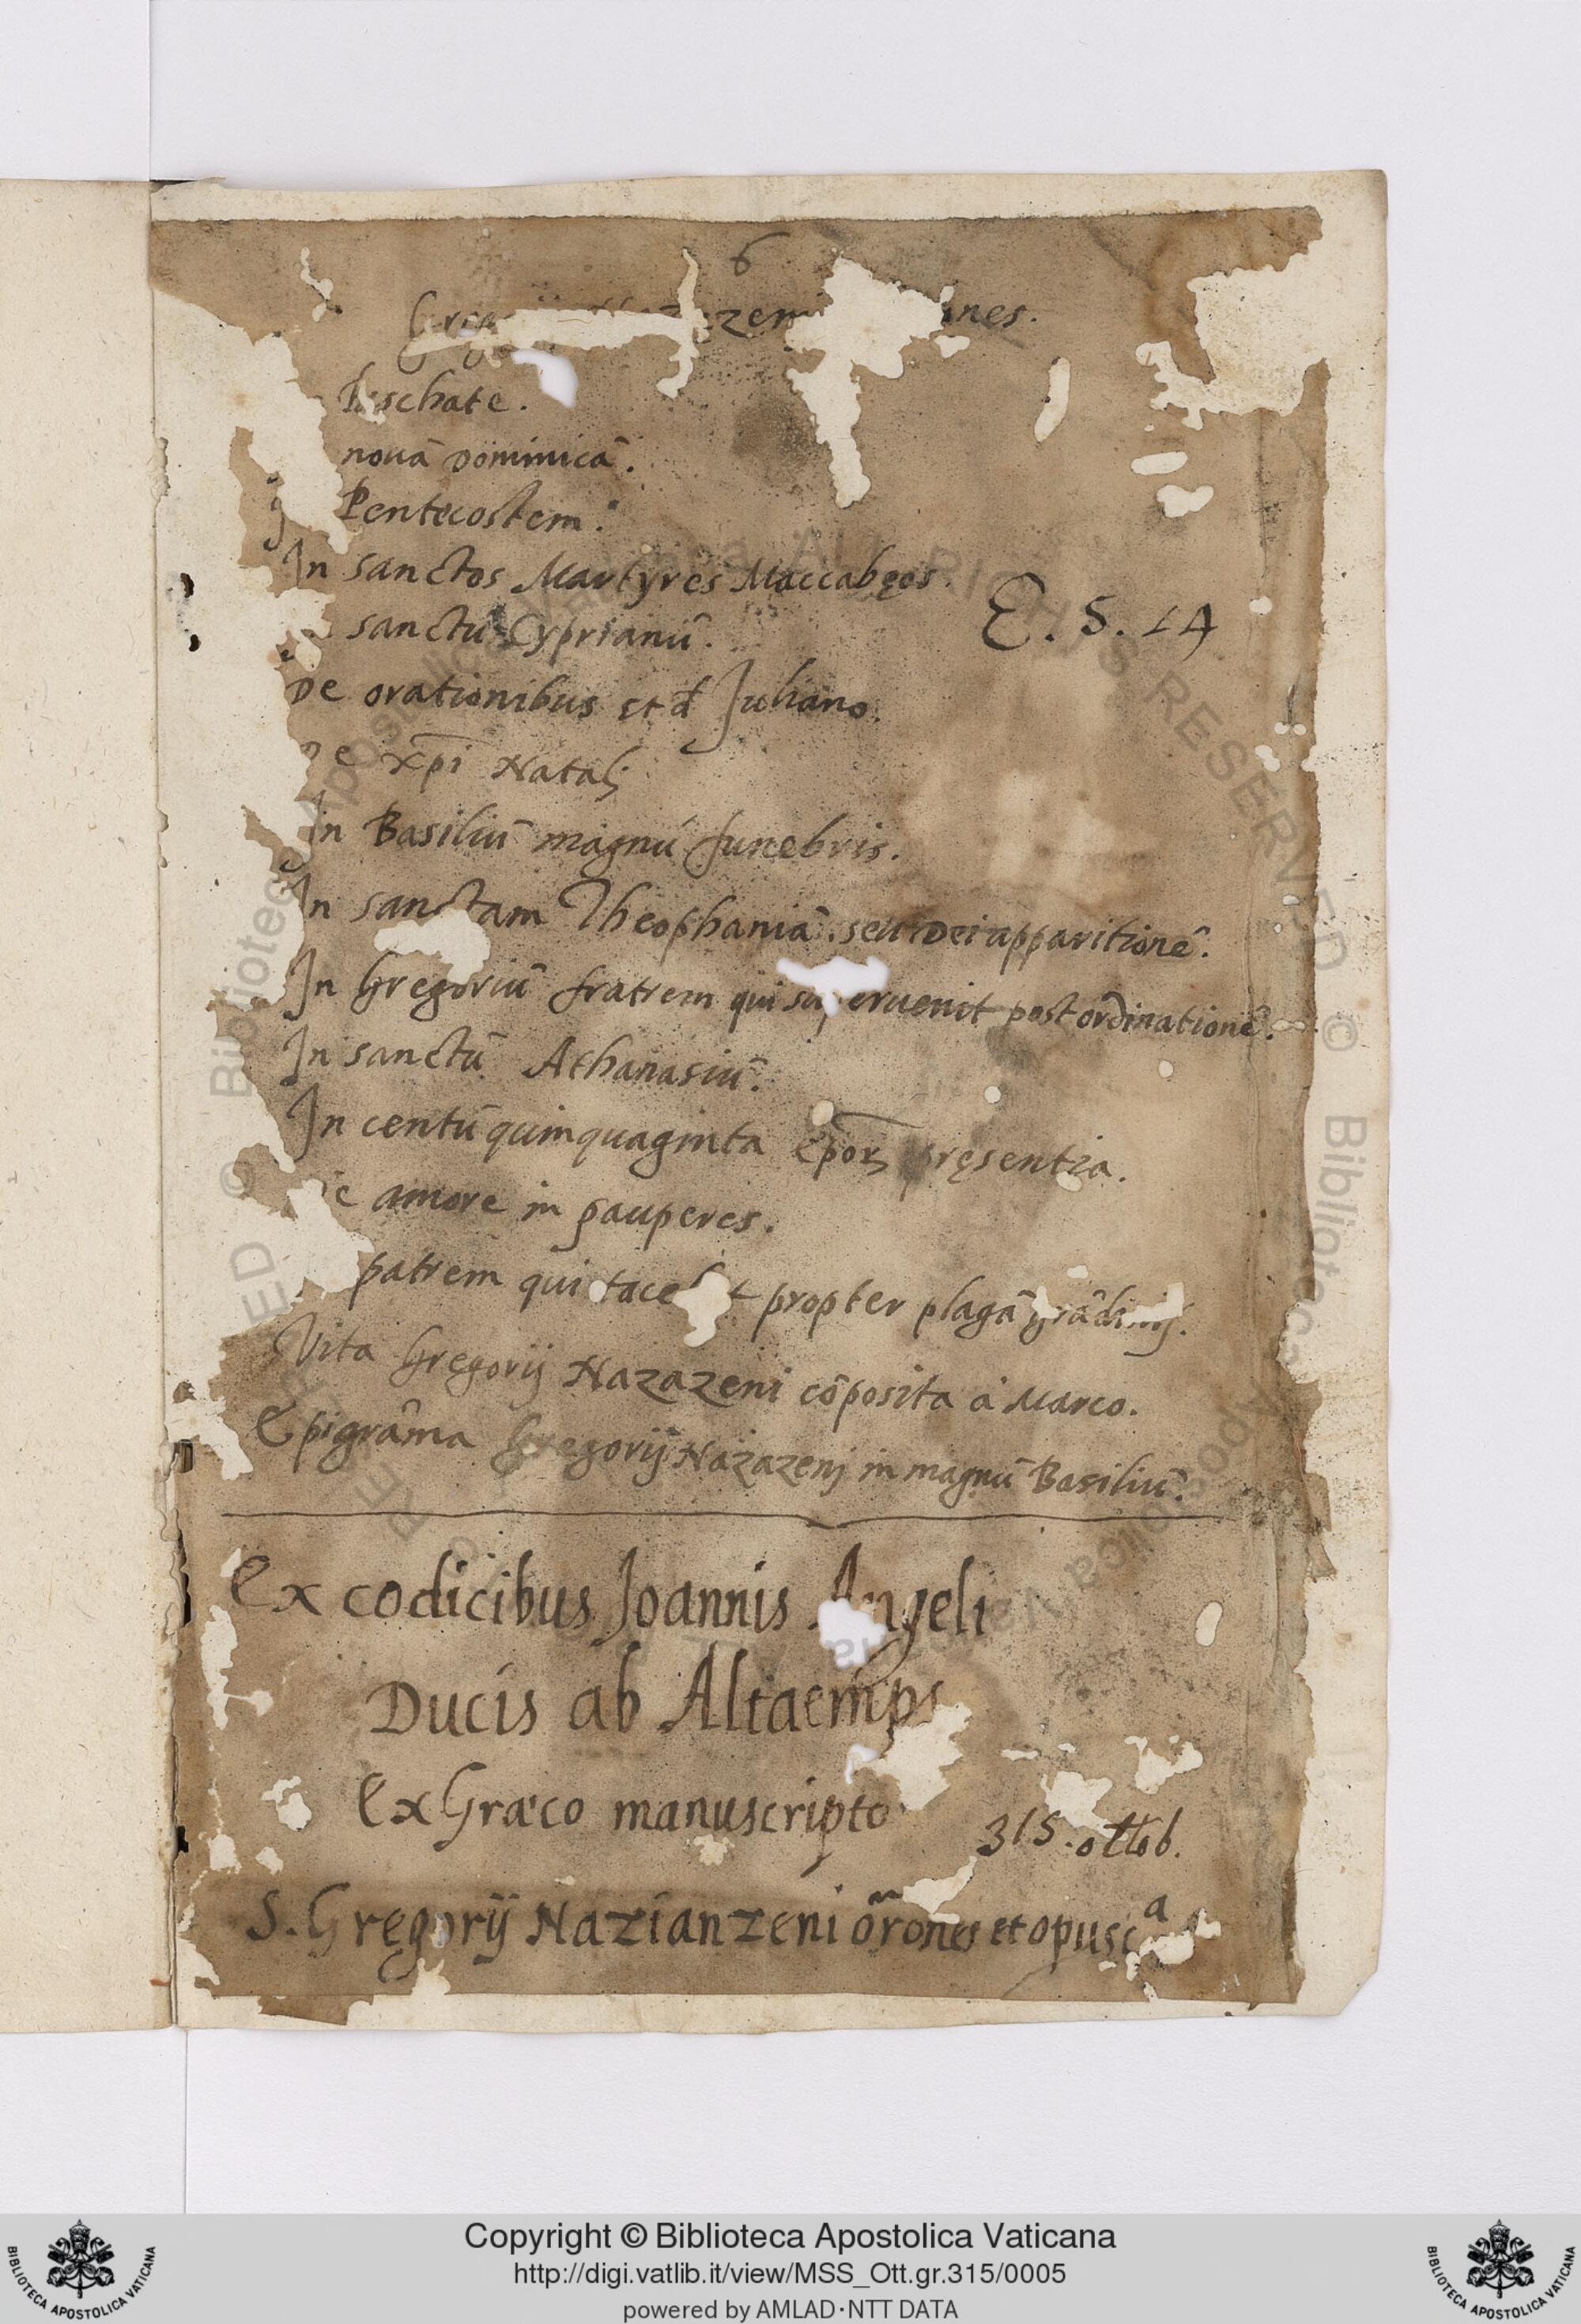 6
Paschate.
novā dominicā.
Pentecostem.
In sanctos Martyres Maccabęos.
sanctū Cyprianū.
E. 5. 14
De orationibus et d̄ Juliano.
De xp̄i Natalj
In Basiliū magnū funebris.
In sanctam Theophaniā. seu Dei apparitionē.
In Gregoriū fratrem qui supervenit post ordinationē.
In sanctū Athanasiū.
In centū quinquaginta ep̄orꝫ pręsentia.
De amore in pauperes.
patrem qui propter plagā
Vita Gregorij Nazazeni cōposita à Marco.
Epigrāma Gregorij Nazazenj in magnū Basiliū.
Ex codicibus Joannis Angeli
Ducis ab Altaemps
Ex Græco manuscripto
315. ottob.
S. Gregorij Nazianzeni ōrones et opusc a
Copyright © Biblioteca Apostolica Vaticana
http://digi.vatlib.it/view/MSS_Ott.gr.315/0005
powered by AMLAD·NTT DATA